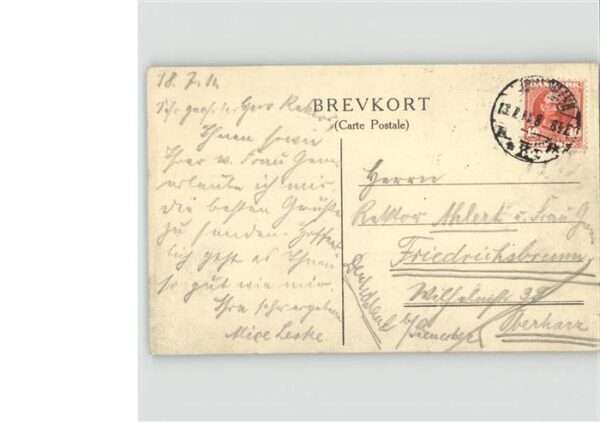 18.7.14
Sehr geehrter Herr Rektor
Ihnen sowie
Ihrer w. Frau Gem
erlaube ich mir
die besten Grüße
zu senden. Hoffent
lich geht es Ihnen
so gut wie mir.
Ihre sehr ergebene
BREVKORT
(Carte Postale)
Herrn
Rektor Ahlert u. Frau Gem
Friedrichsbrunn
Wilhelmstr 39
Oberharz
Deutschland